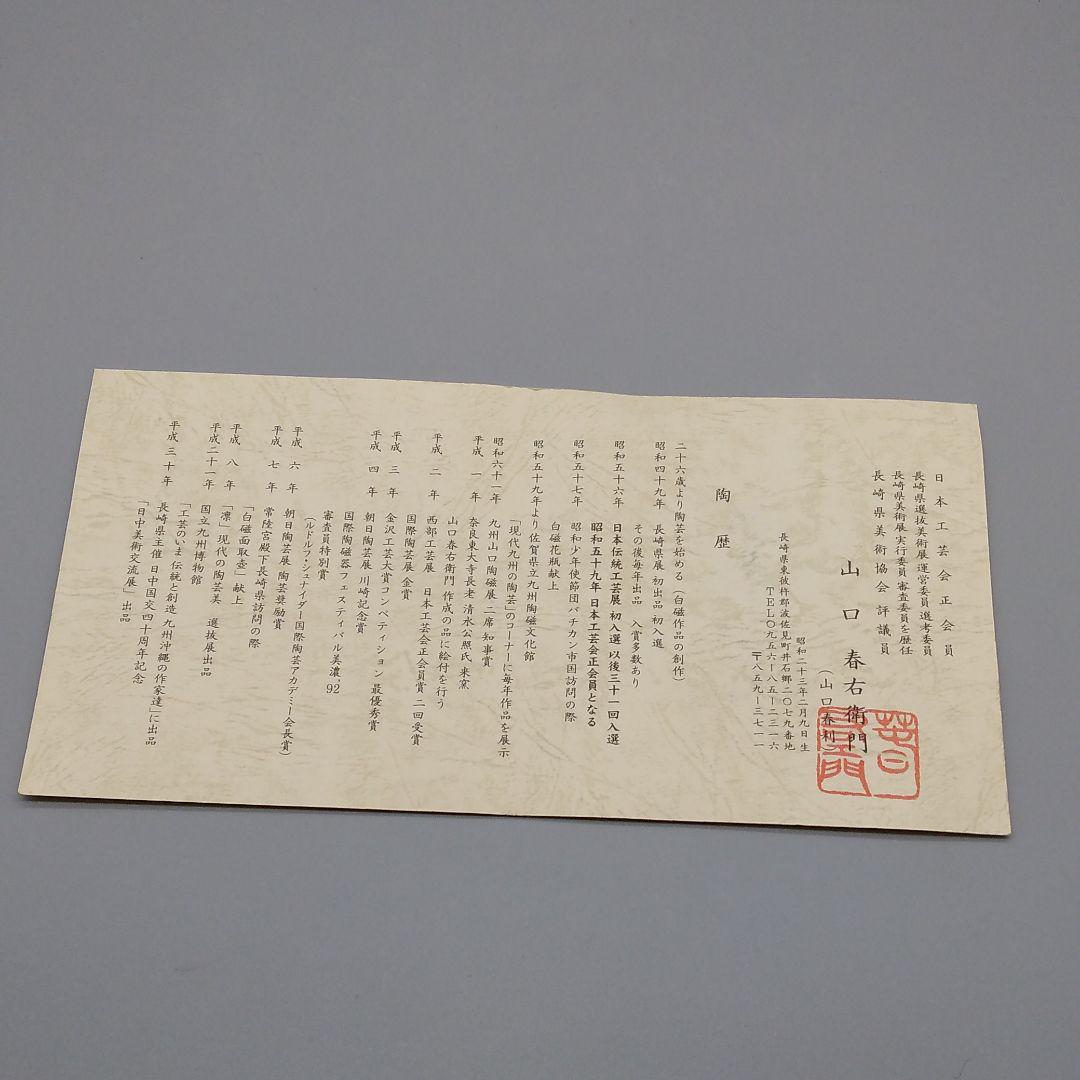 日本工芸会正会員
長崎県選抜美術展運営委員選考委員
長崎県美術展実行委員審査委員を歴任
長崎県美術協会評議員
山口春右衛門
(山口春利)
昭和二十三年二月九日生
長崎県東彼杵郡波佐見町井石郷二〇七九番地
TEL〇九五六ー八五ー二三一六
〒八五九ー三七一一
陶歴
二十六歳より陶芸を始める(白磁作品の創作)
昭和四十九年 長崎県展 初出品 初入選
その後毎年出品 入賞多数あり
昭和五十六年 日本伝統工芸展 初入選 以後三十一回入選
昭和五十九年 日本工芸会正会員となる
昭和五十七年 昭和少年使節団バチカン市国訪問の際
白磁花瓶献上
昭和五十九年より 佐賀県立九州陶磁文化館
「現代九州の陶芸」のコーナーに毎年作品を展示
昭和六十一年 九州山口陶磁展 二席 知事賞
平成 一 年 奈良東大寺長老 清水公照氏 来窯
山口春右衛門 作成の品に絵付を行う
平成 二 年 西部工芸展 日本工芸会正会員賞 二回受賞
国際陶芸展 金賞
平成 三 年 金沢工芸大賞コンペティション 最優秀賞
平成 四 年 朝日陶芸展 川崎記念賞
国際陶磁器フェスティバル美濃'92
審査員特別賞
(ルドルフ・シュナイダー国際陶芸アカデミー会長賞)
平成 六 年 朝日陶芸展 陶芸奨励賞
平成 七 年 常陸宮殿下長崎県訪問の際
「白磁面取壺」献上
平成 八 年 「凛」現代の陶芸美 選抜展出品
平成二十一年 国立九州博物館
「工芸のいま 伝統と創造 九州沖縄の作家達」に出品
平成 三十年 長崎県主催 日中国交四十周年記念
「日中美術交流展」出品